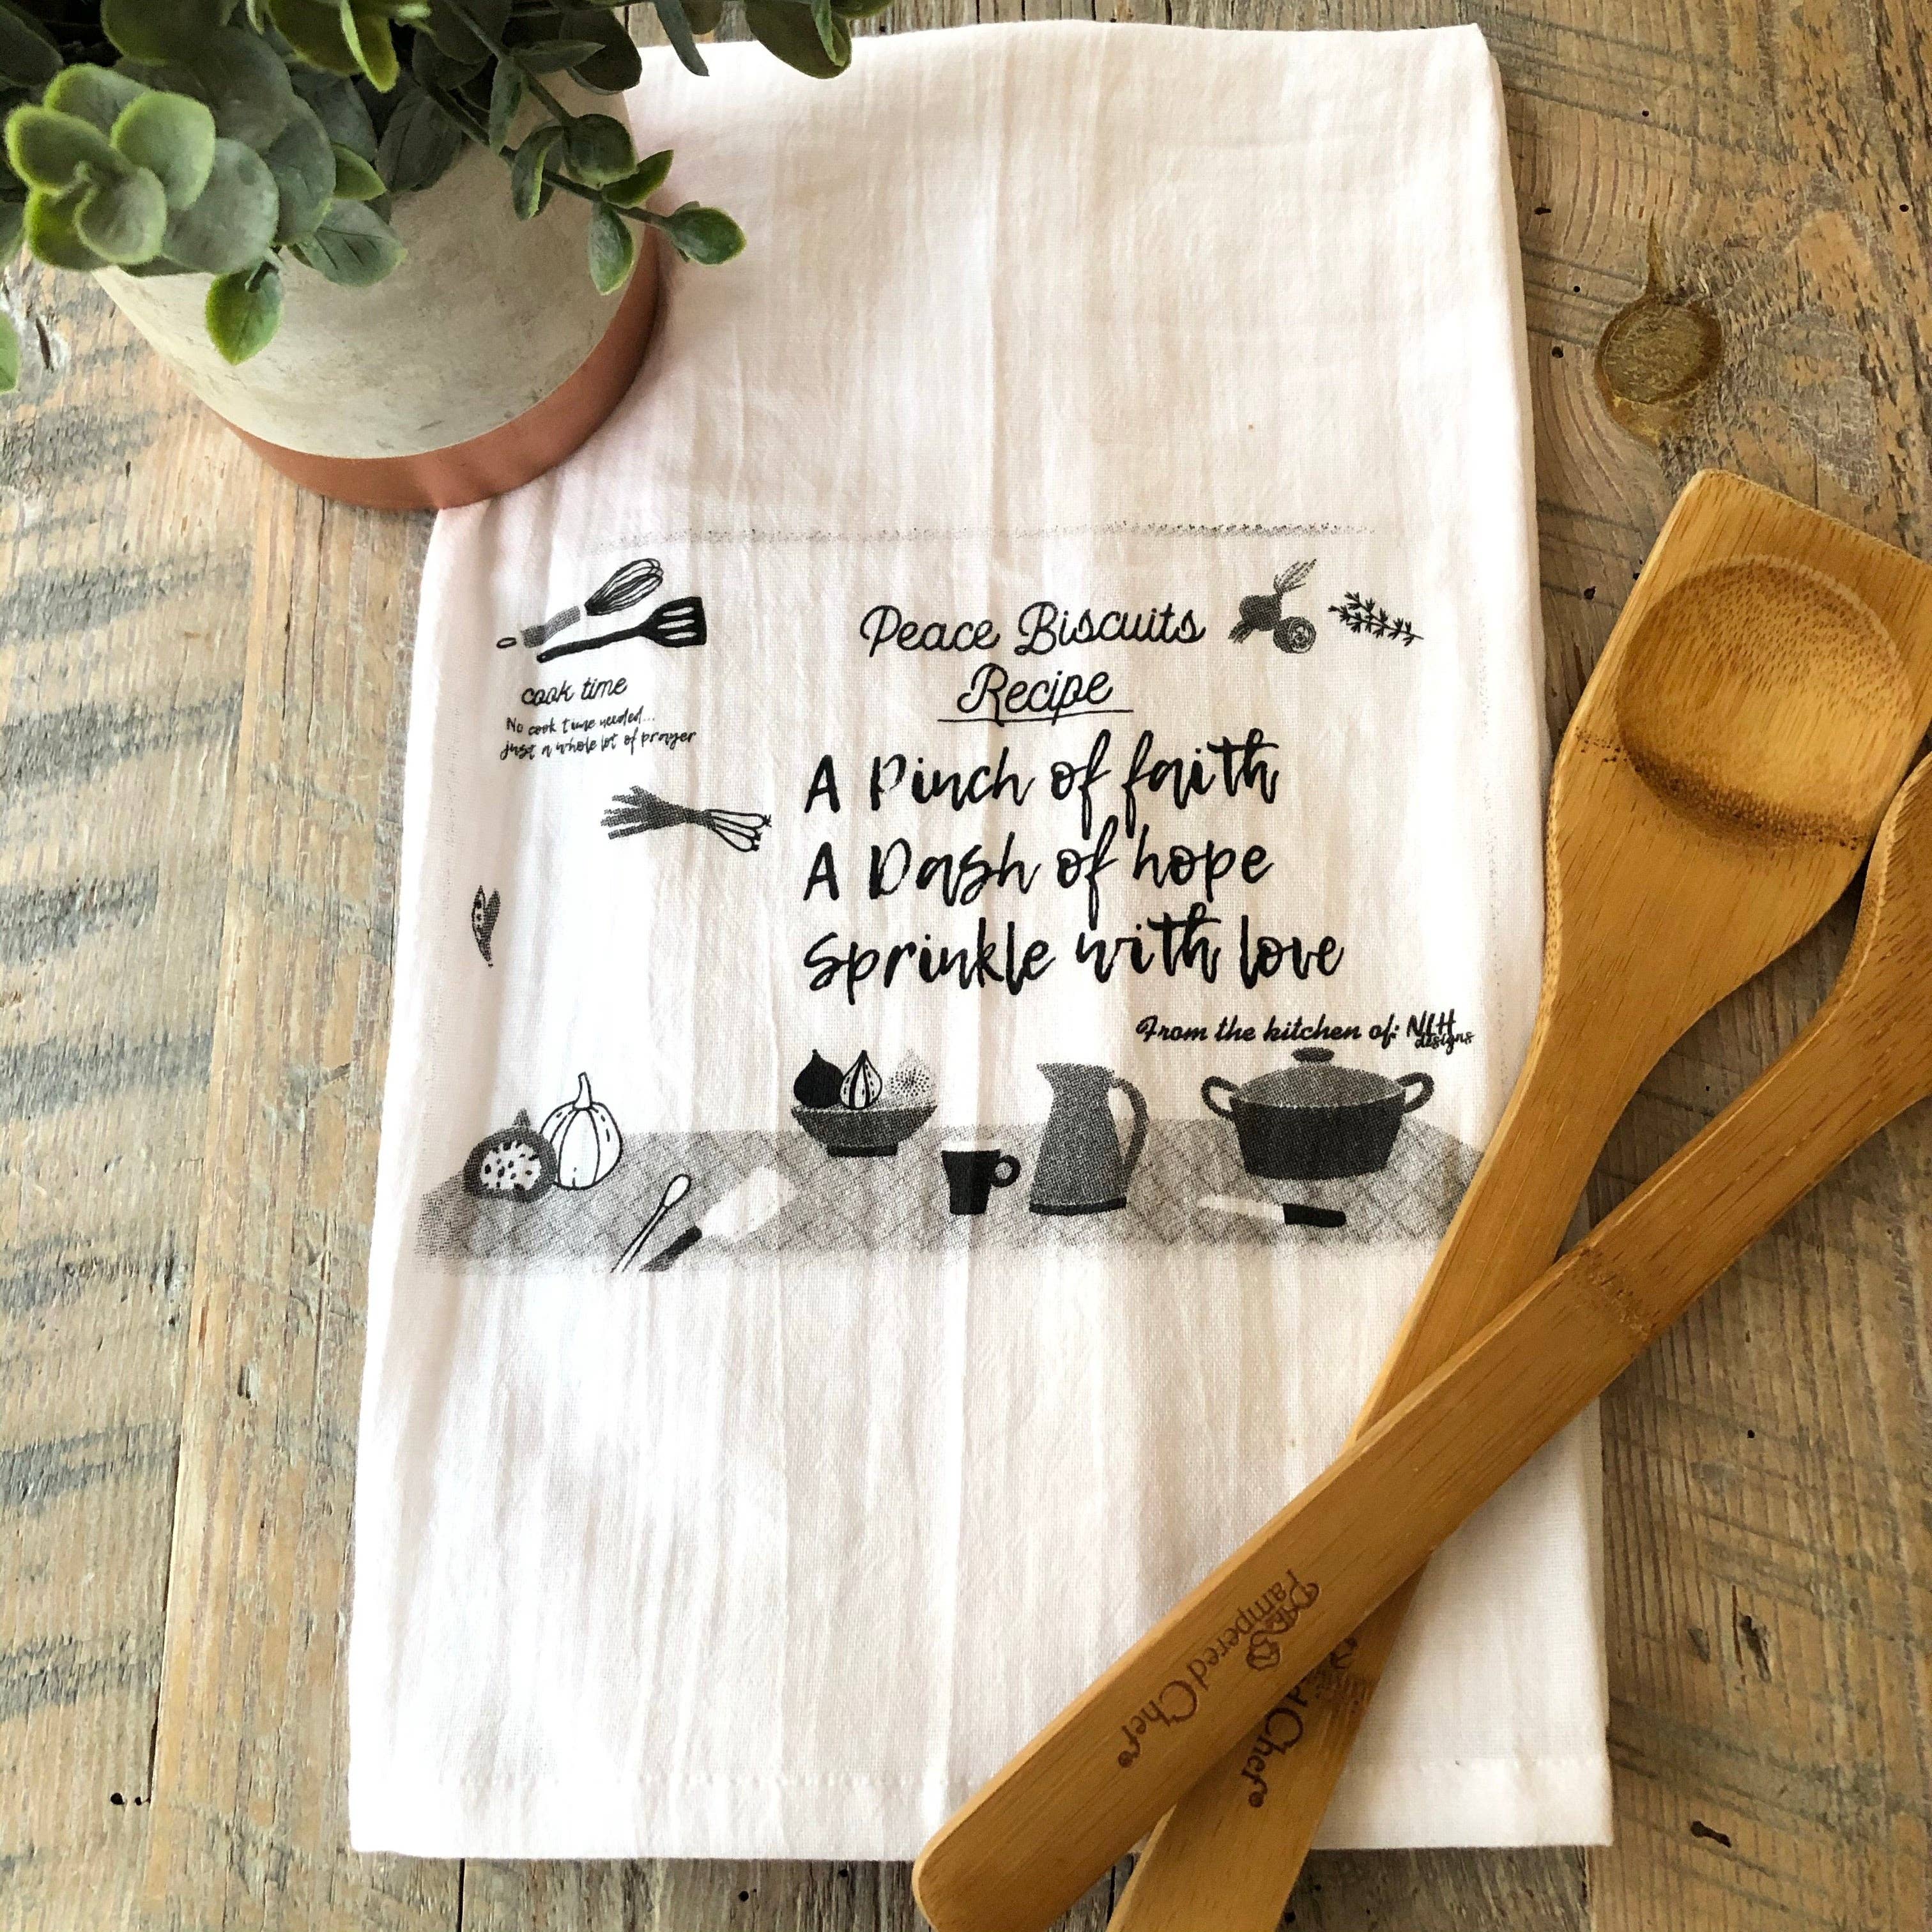 Peace Biscuits
Recipe
cook time
No cook time needed...
just a whole lot of prayer
A Pinch of faith
A Dash of hope
Sprinkle with love
From the kitchen of: NLH
designs
Pampered Chef®
d Chef®